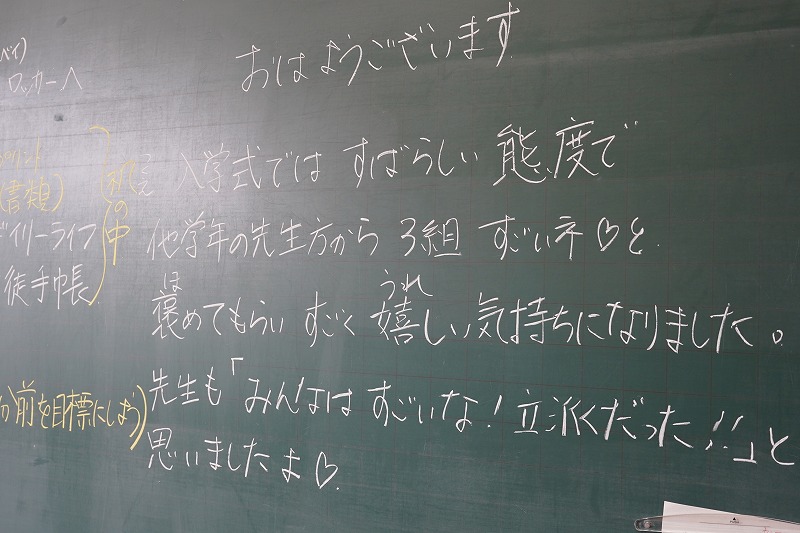 おはようございます
入学式では すばらしい 態度で
他学年の先生方から 3組 すごいネ♡と
ほ うれ
褒めてもらい すごく 嬉しい気持ちになりました。
先生も「みんなは すごいな！立派くだった!!」と
思いましたよ♡
ロッカーへ
(書類)
机の中
イリーライフ
徒手帳
前を目標にしよう)